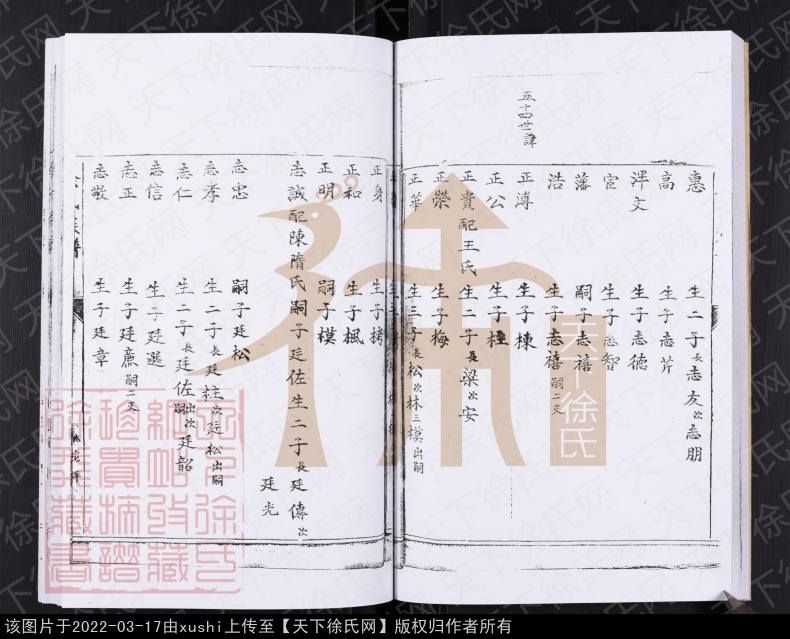 五十四世諱
惠 生二子長志友次志朋
高 生子志芹
泮文 生子志德
宦 生子志智
藩 嗣子志禧
浩 生子志禧嗣二支
正溥 生子棟
正公 生子
正貴配王氏 生二子長梁次安
正榮 生子梅
正華 生三子長松次林三模出嗣
正身 生子栲
正和 生子楓
正明 嗣子模
志誠配陳隋氏嗣子廷佐生二子長廷傳次
廷光
志忠 嗣子廷松
志孝 生二子長廷柱次廷松出嗣
志仁 生二子長廷佐出嗣次廷韶
志信 生子廷選
志正 生子廷薦嗣二支
志敬 生子廷章
族譜
天下徐氏
天下徐氏网
该图片于2022-03-17由xushi上传至【天下徐氏网】版权归作者所有